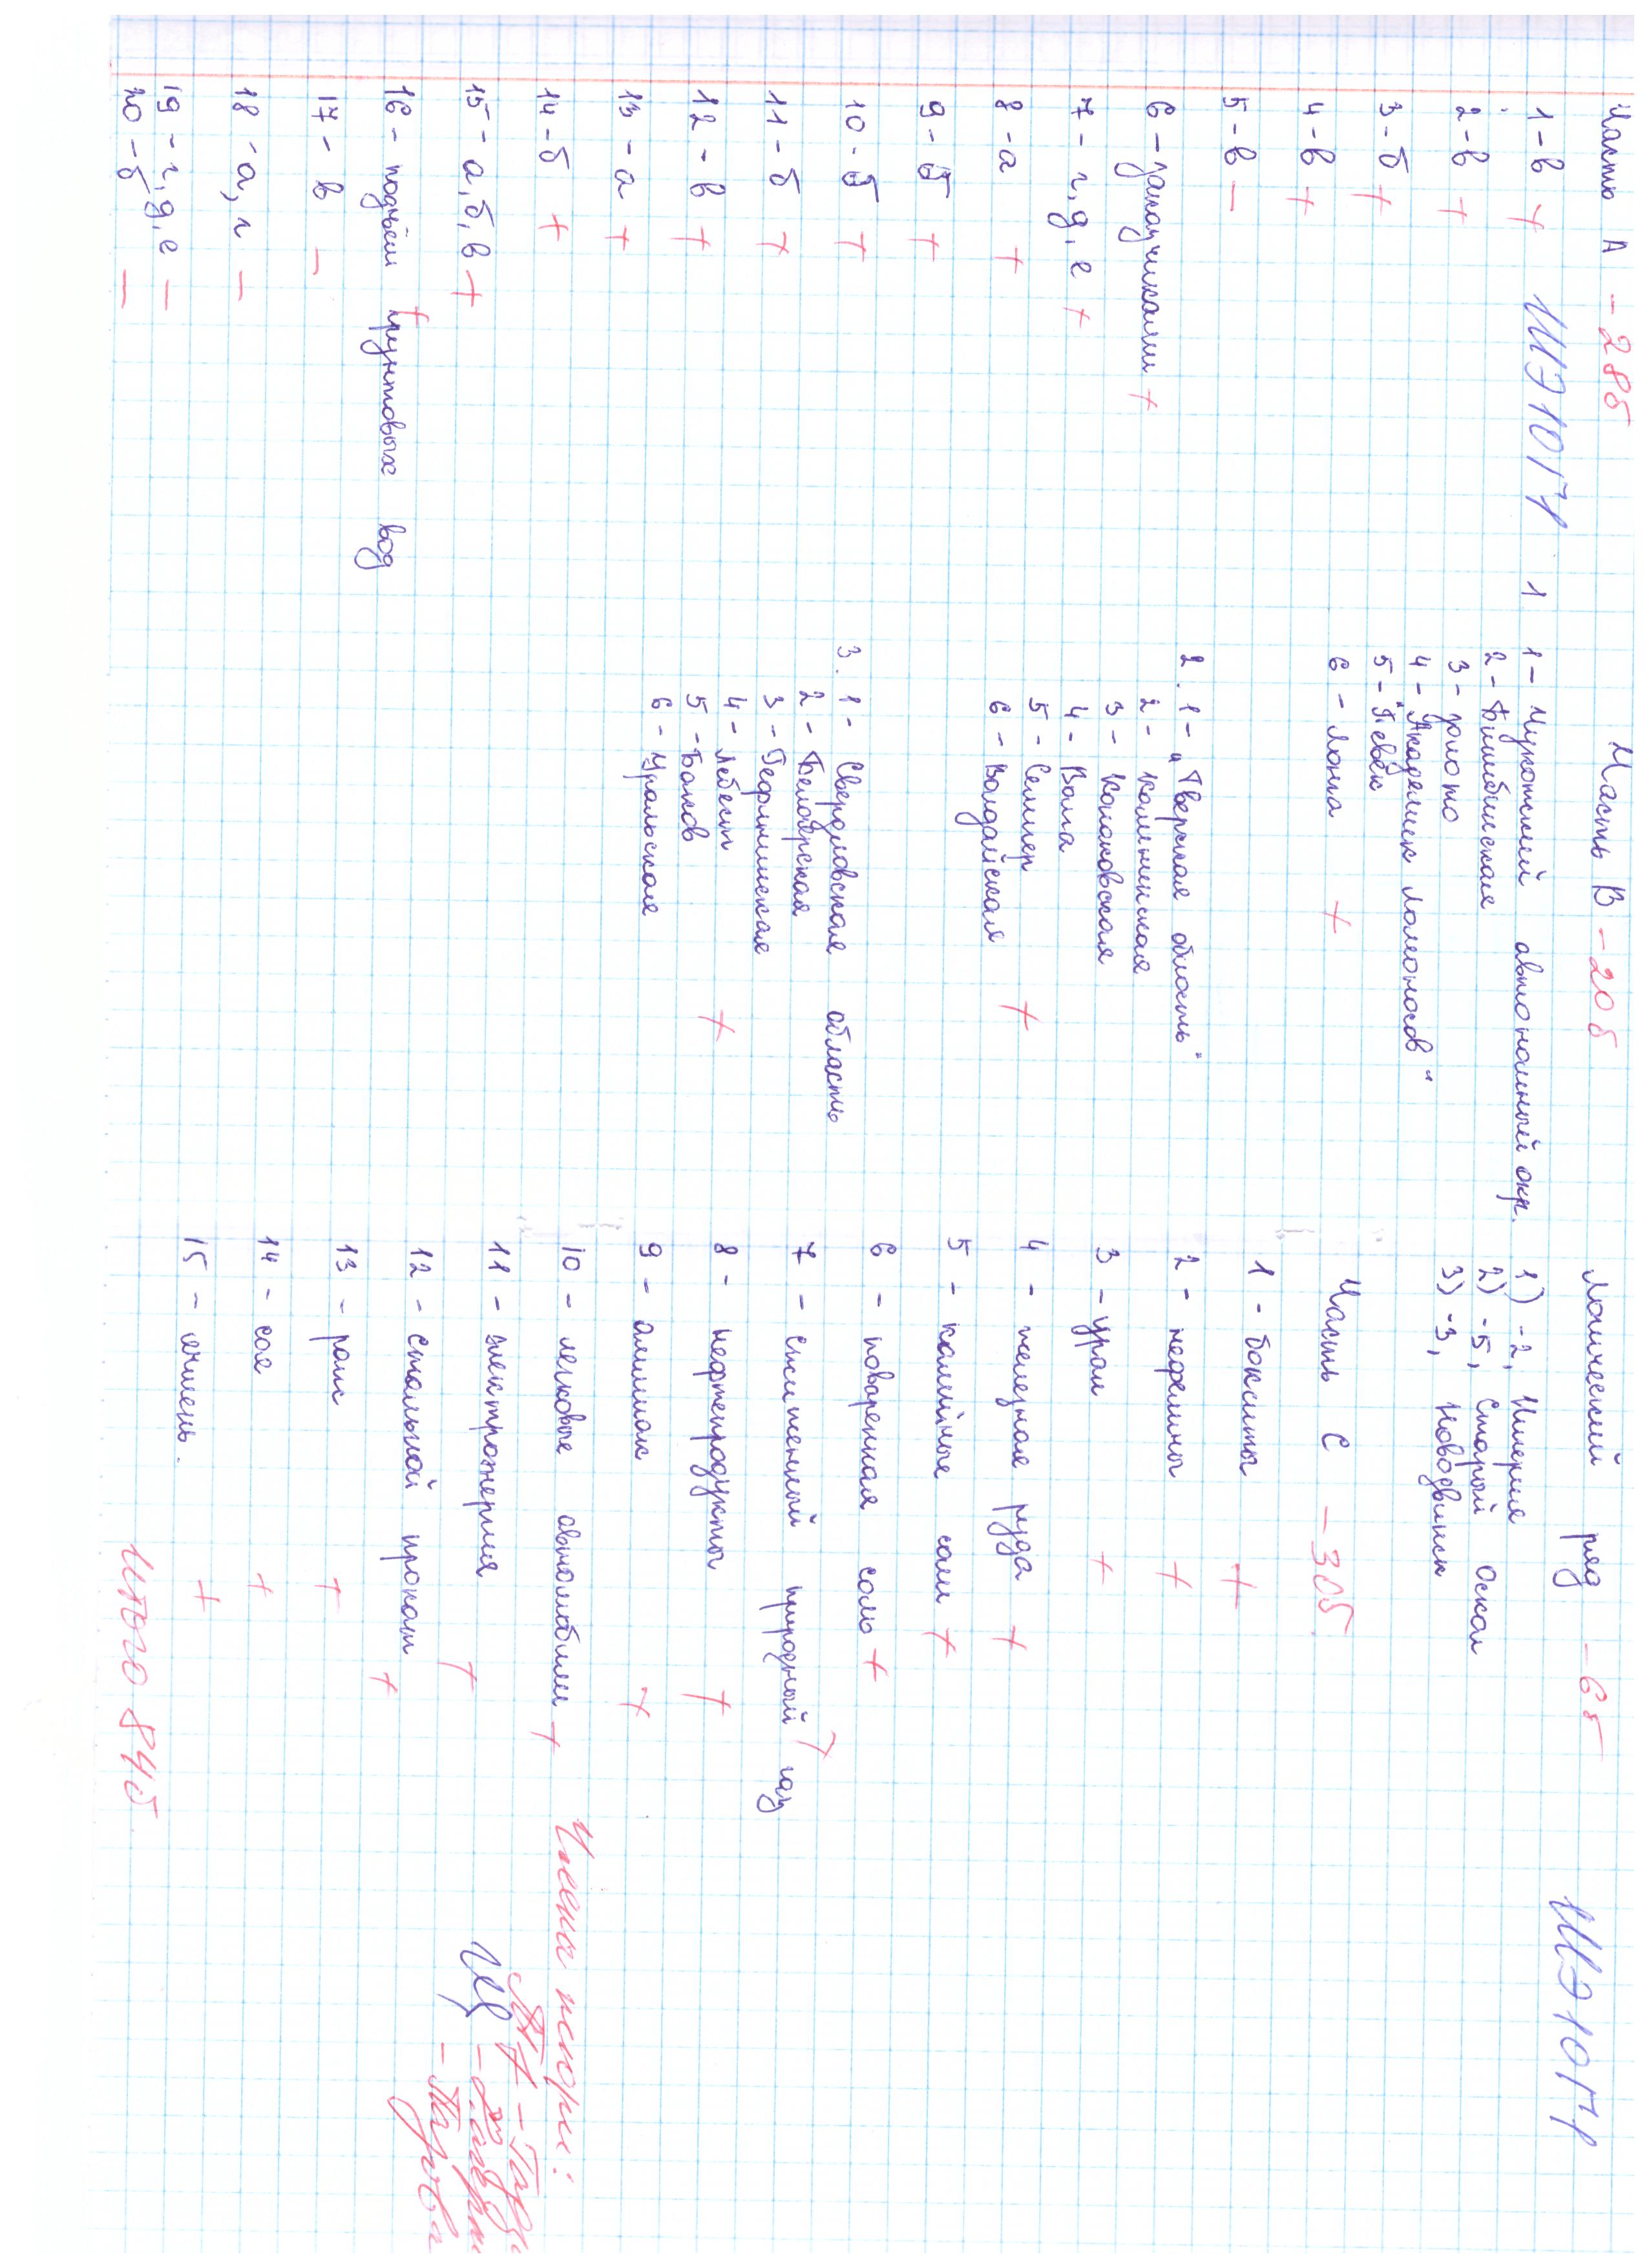 Часть А - 28б
ШЭ10Гр
1-в +
2-в +
3-б +
4-в +
5-в -
6-заказчиками +
7-г,д,е +
8-а +
9-б +
10-б +
11-б +
12-в +
13-а +
14-б +
15-а,б,в +
16-подъём грунтовых вод +
17-в -
18-а,г -
19-г,д,е -
20-б -
Часть В - 20б
1 1-Чукотский автономный окр.
2-Билибинская
3-золото
4-"Академик Ломоносов"
5-Певек
6- +
2. 1-"Тверская область"
2-Калининская
3-Конаковская
4-Волга
5-Селигер
6-Валдайская +
3. 1-Свердловская область
2-Белоярская
3-Рефтинская
4-
5-Бажов
6-Уральская +
Логический ряд - 6б
ШЭ10Гр
1) -2, Нигерия
2) -5, Старый Оскол
3) -3, Новодвинск
Часть С - 30б.
1-бокситы +
2-нефелины +
3-уран +
4-железная руда +
5-калийные соли +
6-поваренная соль +
7-сжиженный природный газ +
8-нефтепродукты +
9-аммиак +
10-легковые автомобили +
11-электроэнергия +
12-стальной прокат +
13-рапс +
14-соя +
15-ячмень. +
Итого 84б
Члены жюри: